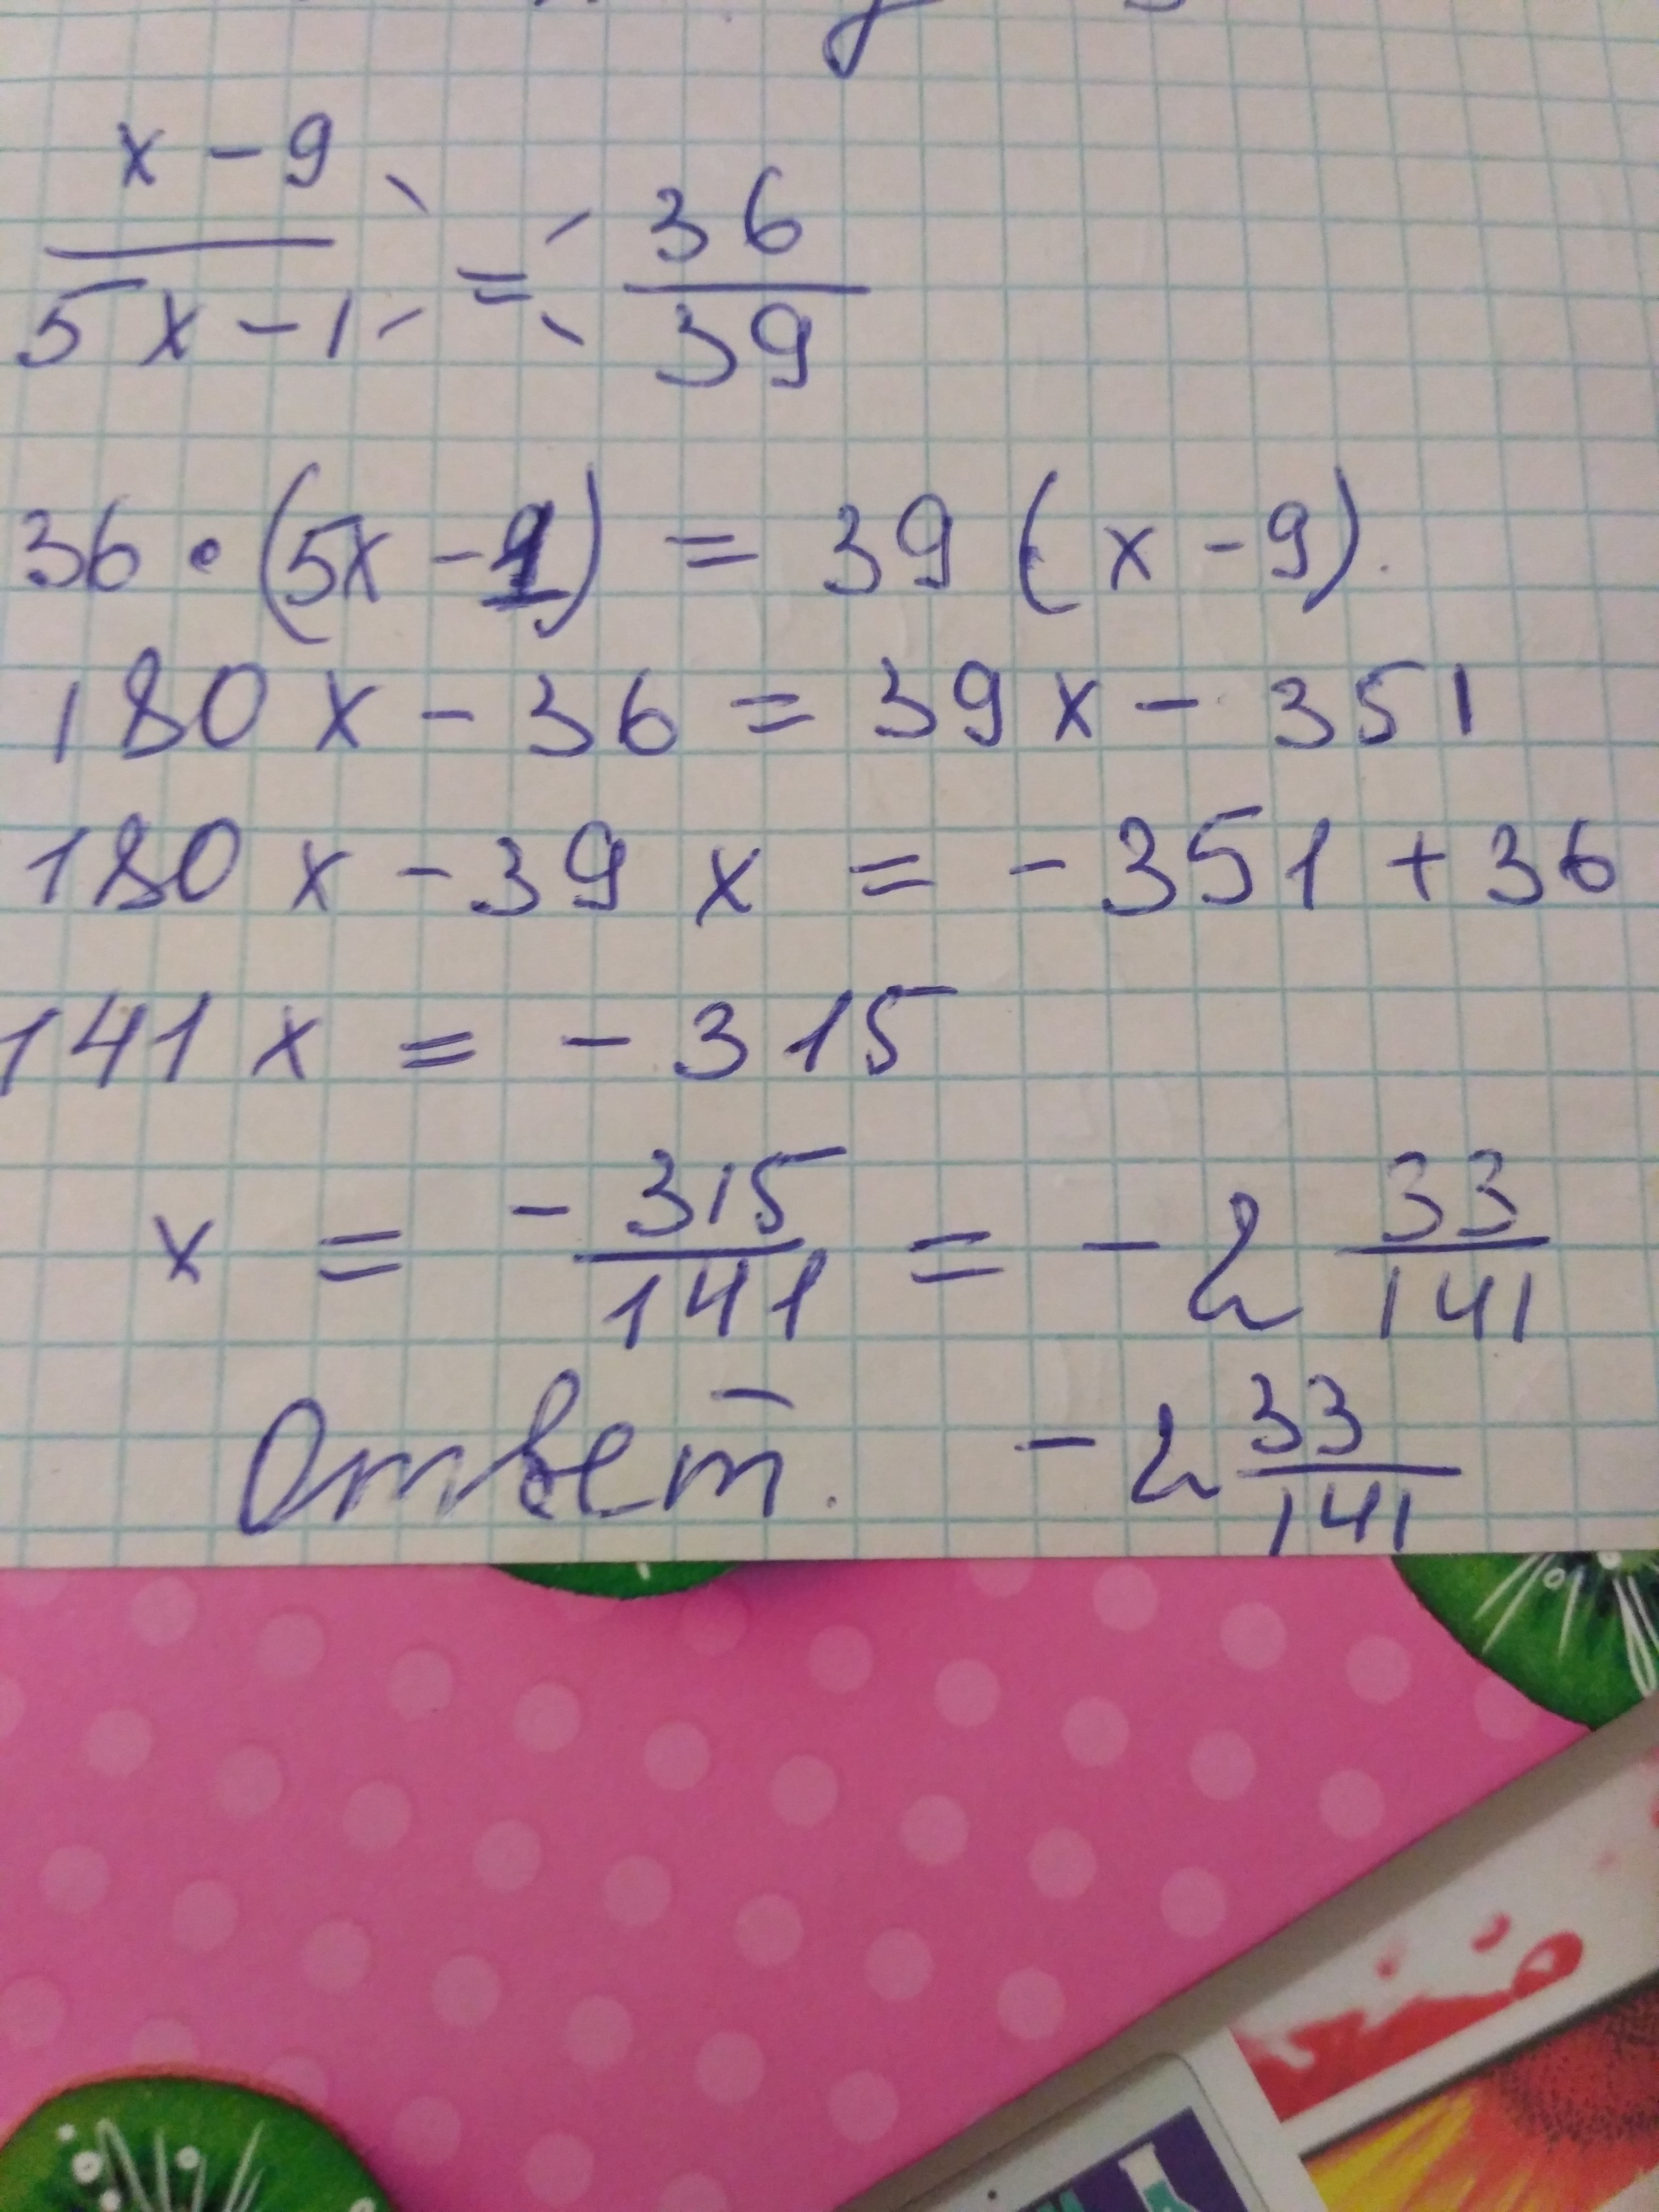 x - 9 / 5x - 1 = 36 / 39
36 • (5x - 1) = 39 (x - 9).
180 x - 36 = 39 x - 351
180 x - 39 x = - 351 + 36
141 x = - 315
x = - 315 / 141 = - 2 33 / 141
Ответ. - 2 33 / 141